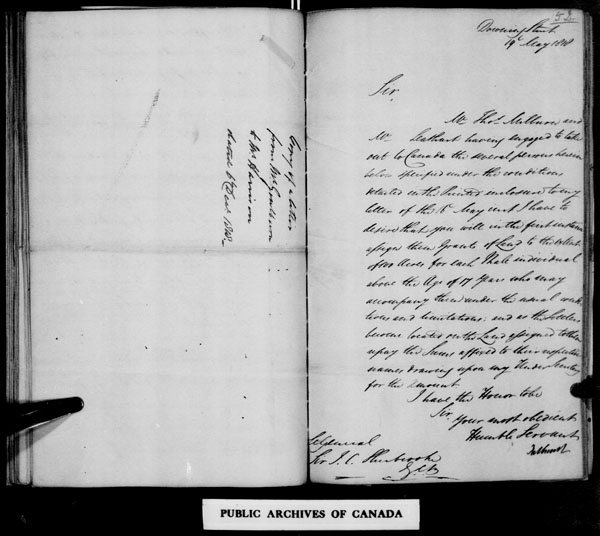 Copy of a letter
from Mr Goulburn
to Mr Harrison
dated 6 Decr 1818
52
Downing Street
19 May 1818
Sir,
Mr Thos. Millman and
Mr having engaged to take
out to Canada the several persons herein
below specified under the conditions
detailed in the Printed enclosure to my
letter of the May inst I have to
desire that you will in the first instance
assign them Grants of Land to the extent
of 100 Acres for each Male individual
above the Age of 17 Years who may
accompany them under the usual
tions and limitations; and as the Settlers
become located on the Land assigned to them
repay the Sums affixed to their respective
names drawing upon my Under Secretary
for the amount
I have the Honor to be
Sir
Your most obedient
Humble Servant
Bathurst
Lt General
Sir J. C. Sherbrooke
PUBLIC ARCHIVES OF CANADA